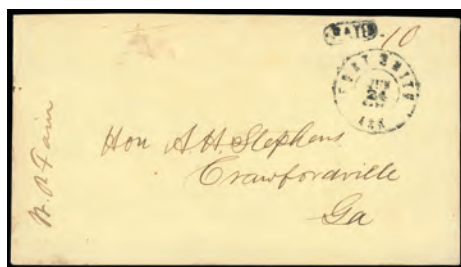 PAID 10
FORT SMITH
JUN
24
ARK
Hon A. H. Stephens
Crawfordville
Ga